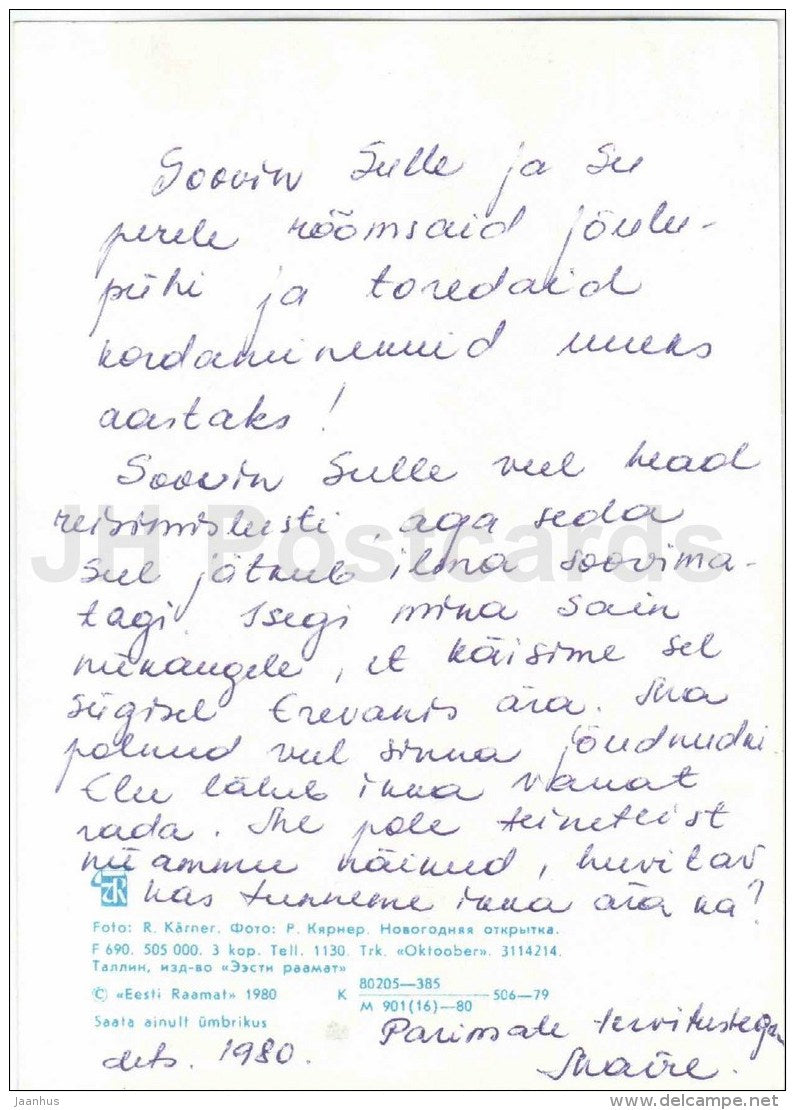 Soovin Sulle ja Su
perele rõõmsaid jõulu-
pühi ja toredaid
kordaminekuid uueks
aastaks!
Soovin Sulle veel head
reisimislusti, aga seda
Sul jätkub ilma soovima-
tagi. Isegi mina sain
niikaugele, et käisime sel
sügisel Erevanis ära. Ma
polnud veel sinna jõudnudki.
Elu läheb ikka vanat
rada. Me pole teineteist
nii ammu näinud, huvitav
kas tunneme ikka ära ka?
JH Postcards
ER
Foto: R. Kärner. Фото: Р. Кярнер. Новогодняя открытка.
F 690. 505 000. 3 kop. Tell. 1130. Trk. «Oktoober». 3114214.
Таллин, изд-во «Ээсти раамат»
© «Eesti Raamat» 1980 К 80205—385 506—79
М 901(16)—80
Saata ainult ümbrikus
Parimate tervitustega
dets. 1980. Maire.
Jaanhus
www.delcampe.net